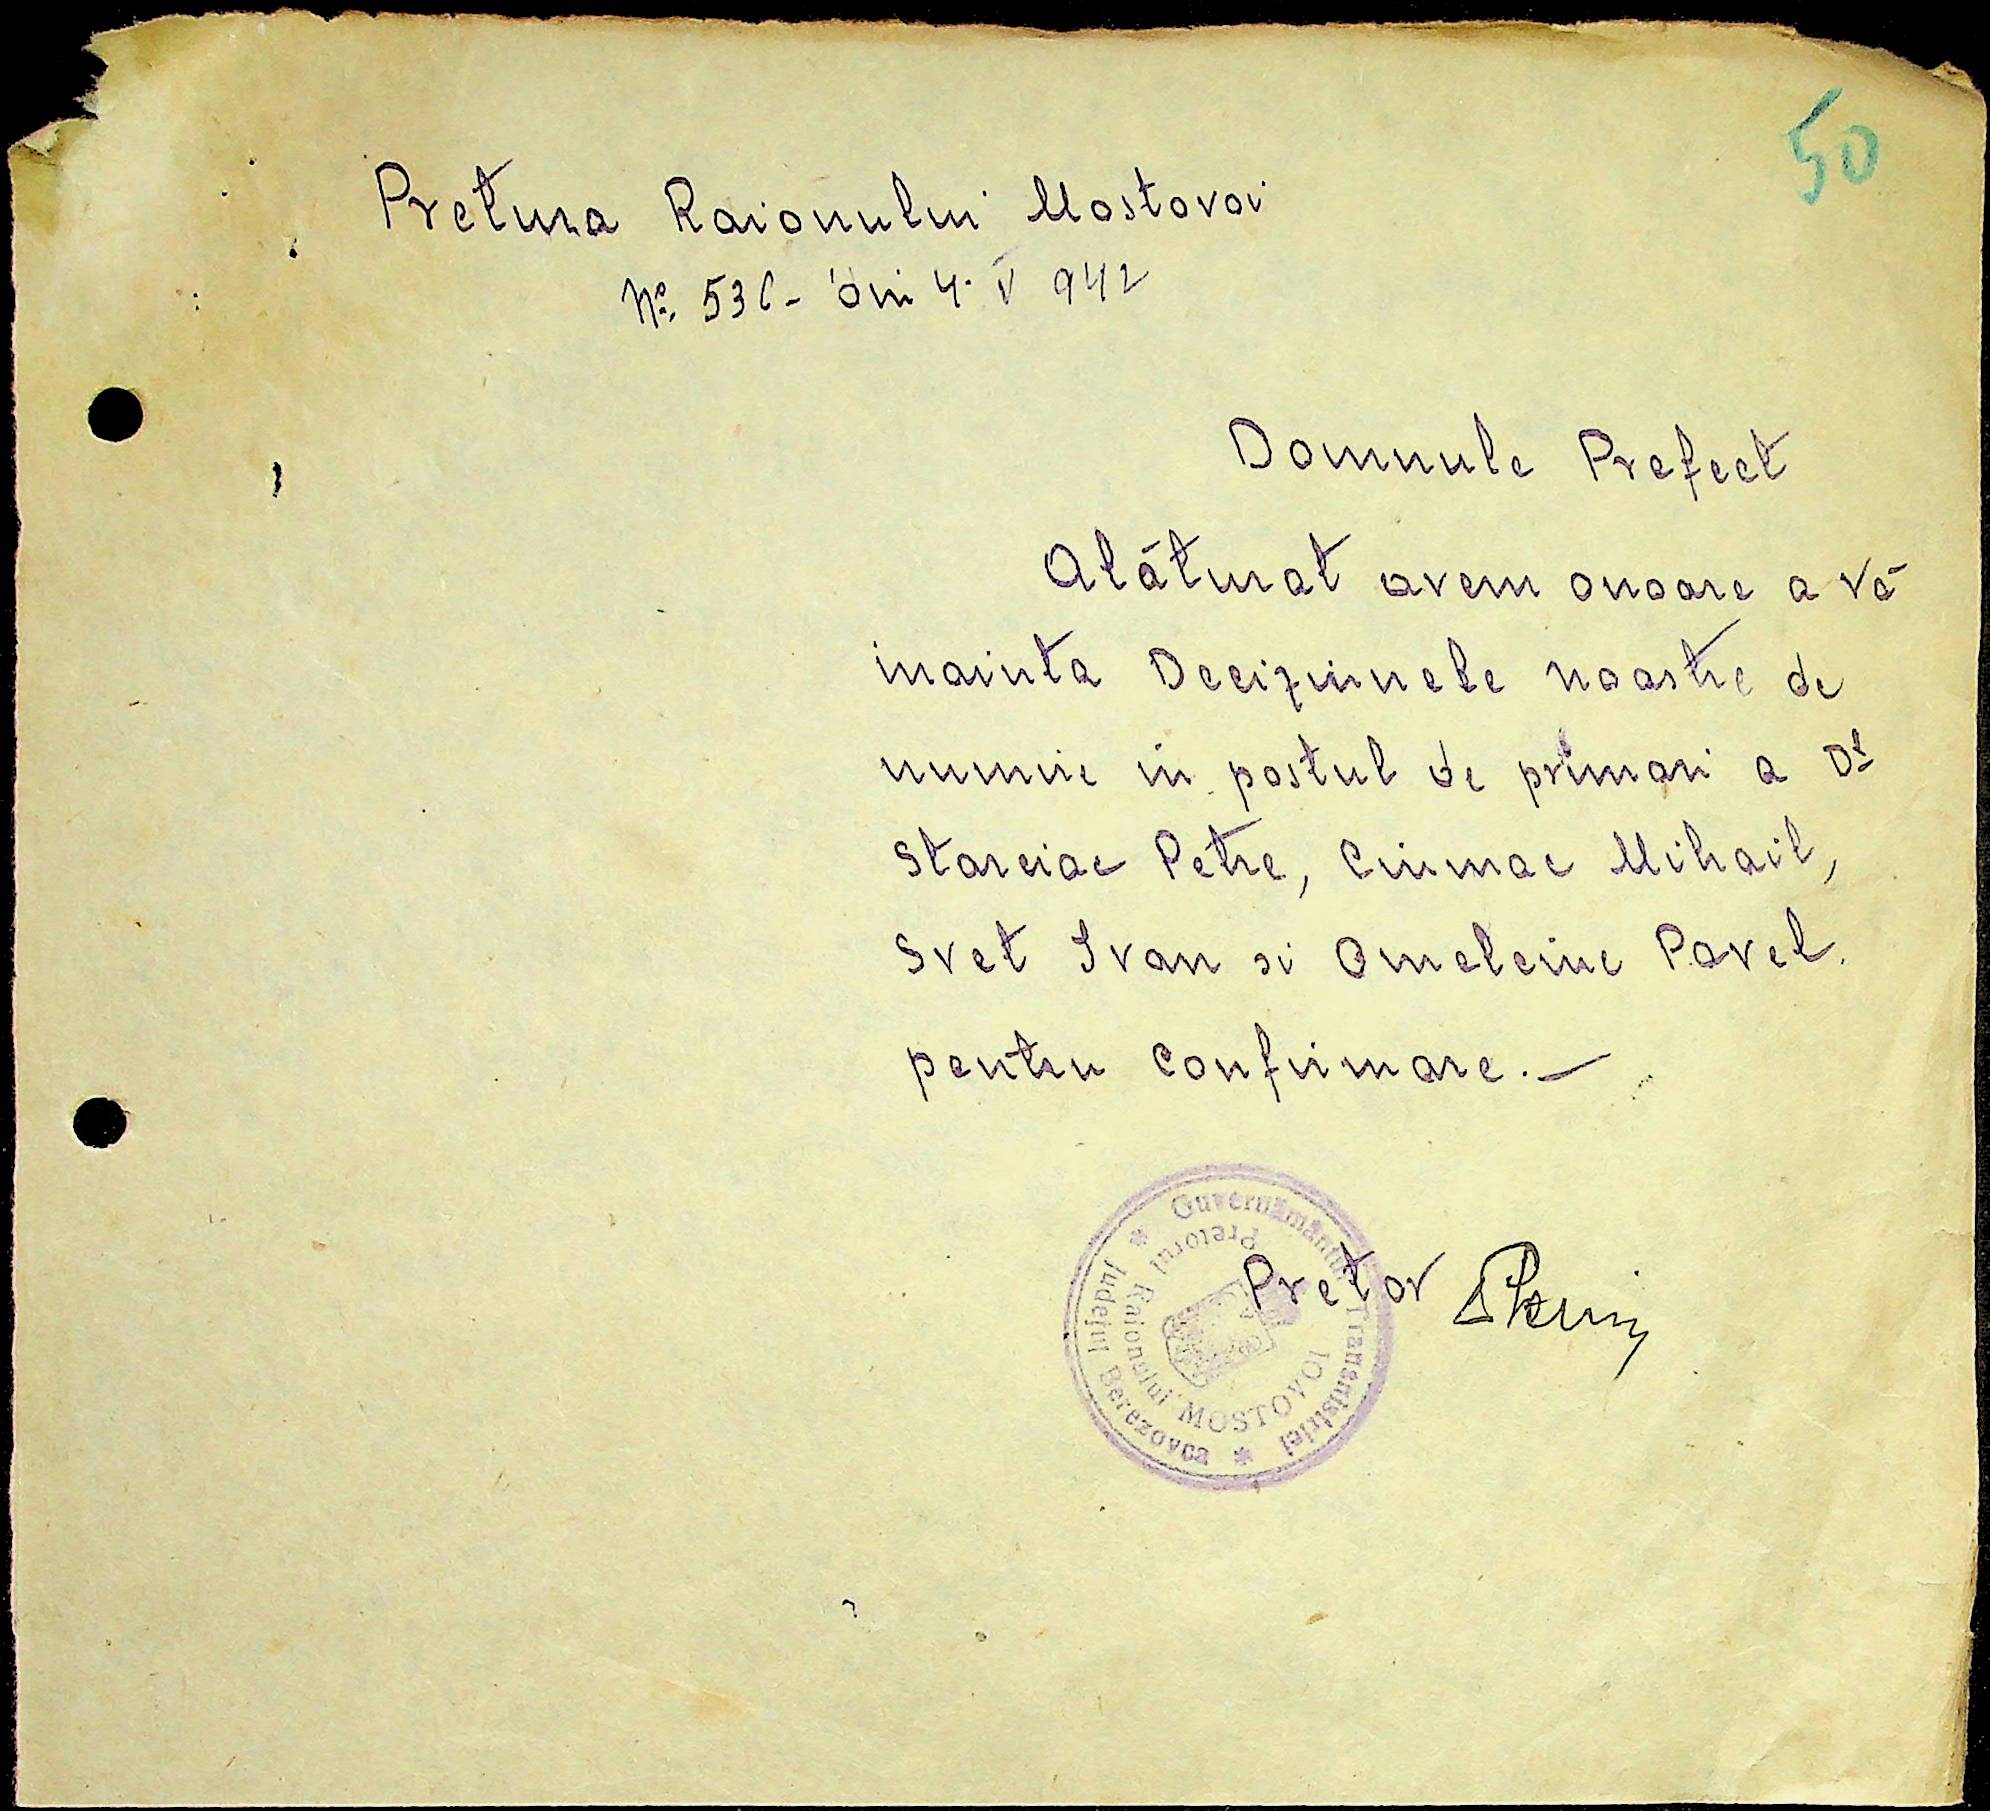 50
Pretura Raionului Mostovoi
No. 536 - din 4. V 942
Domnule Prefect
Alăturat avem onoare a vă
inainta Deciziunele noastre de
numire in postul de primari a Dl
Starciac Petre, Ciumac Mihail,
Svet Ivan si Omelciuc Pavel.
pentru confirmare.—
Pretor
* Guvernământul Transnistriei * Judeţul Berezovca
Pretorul Raionului MOSTOVOI